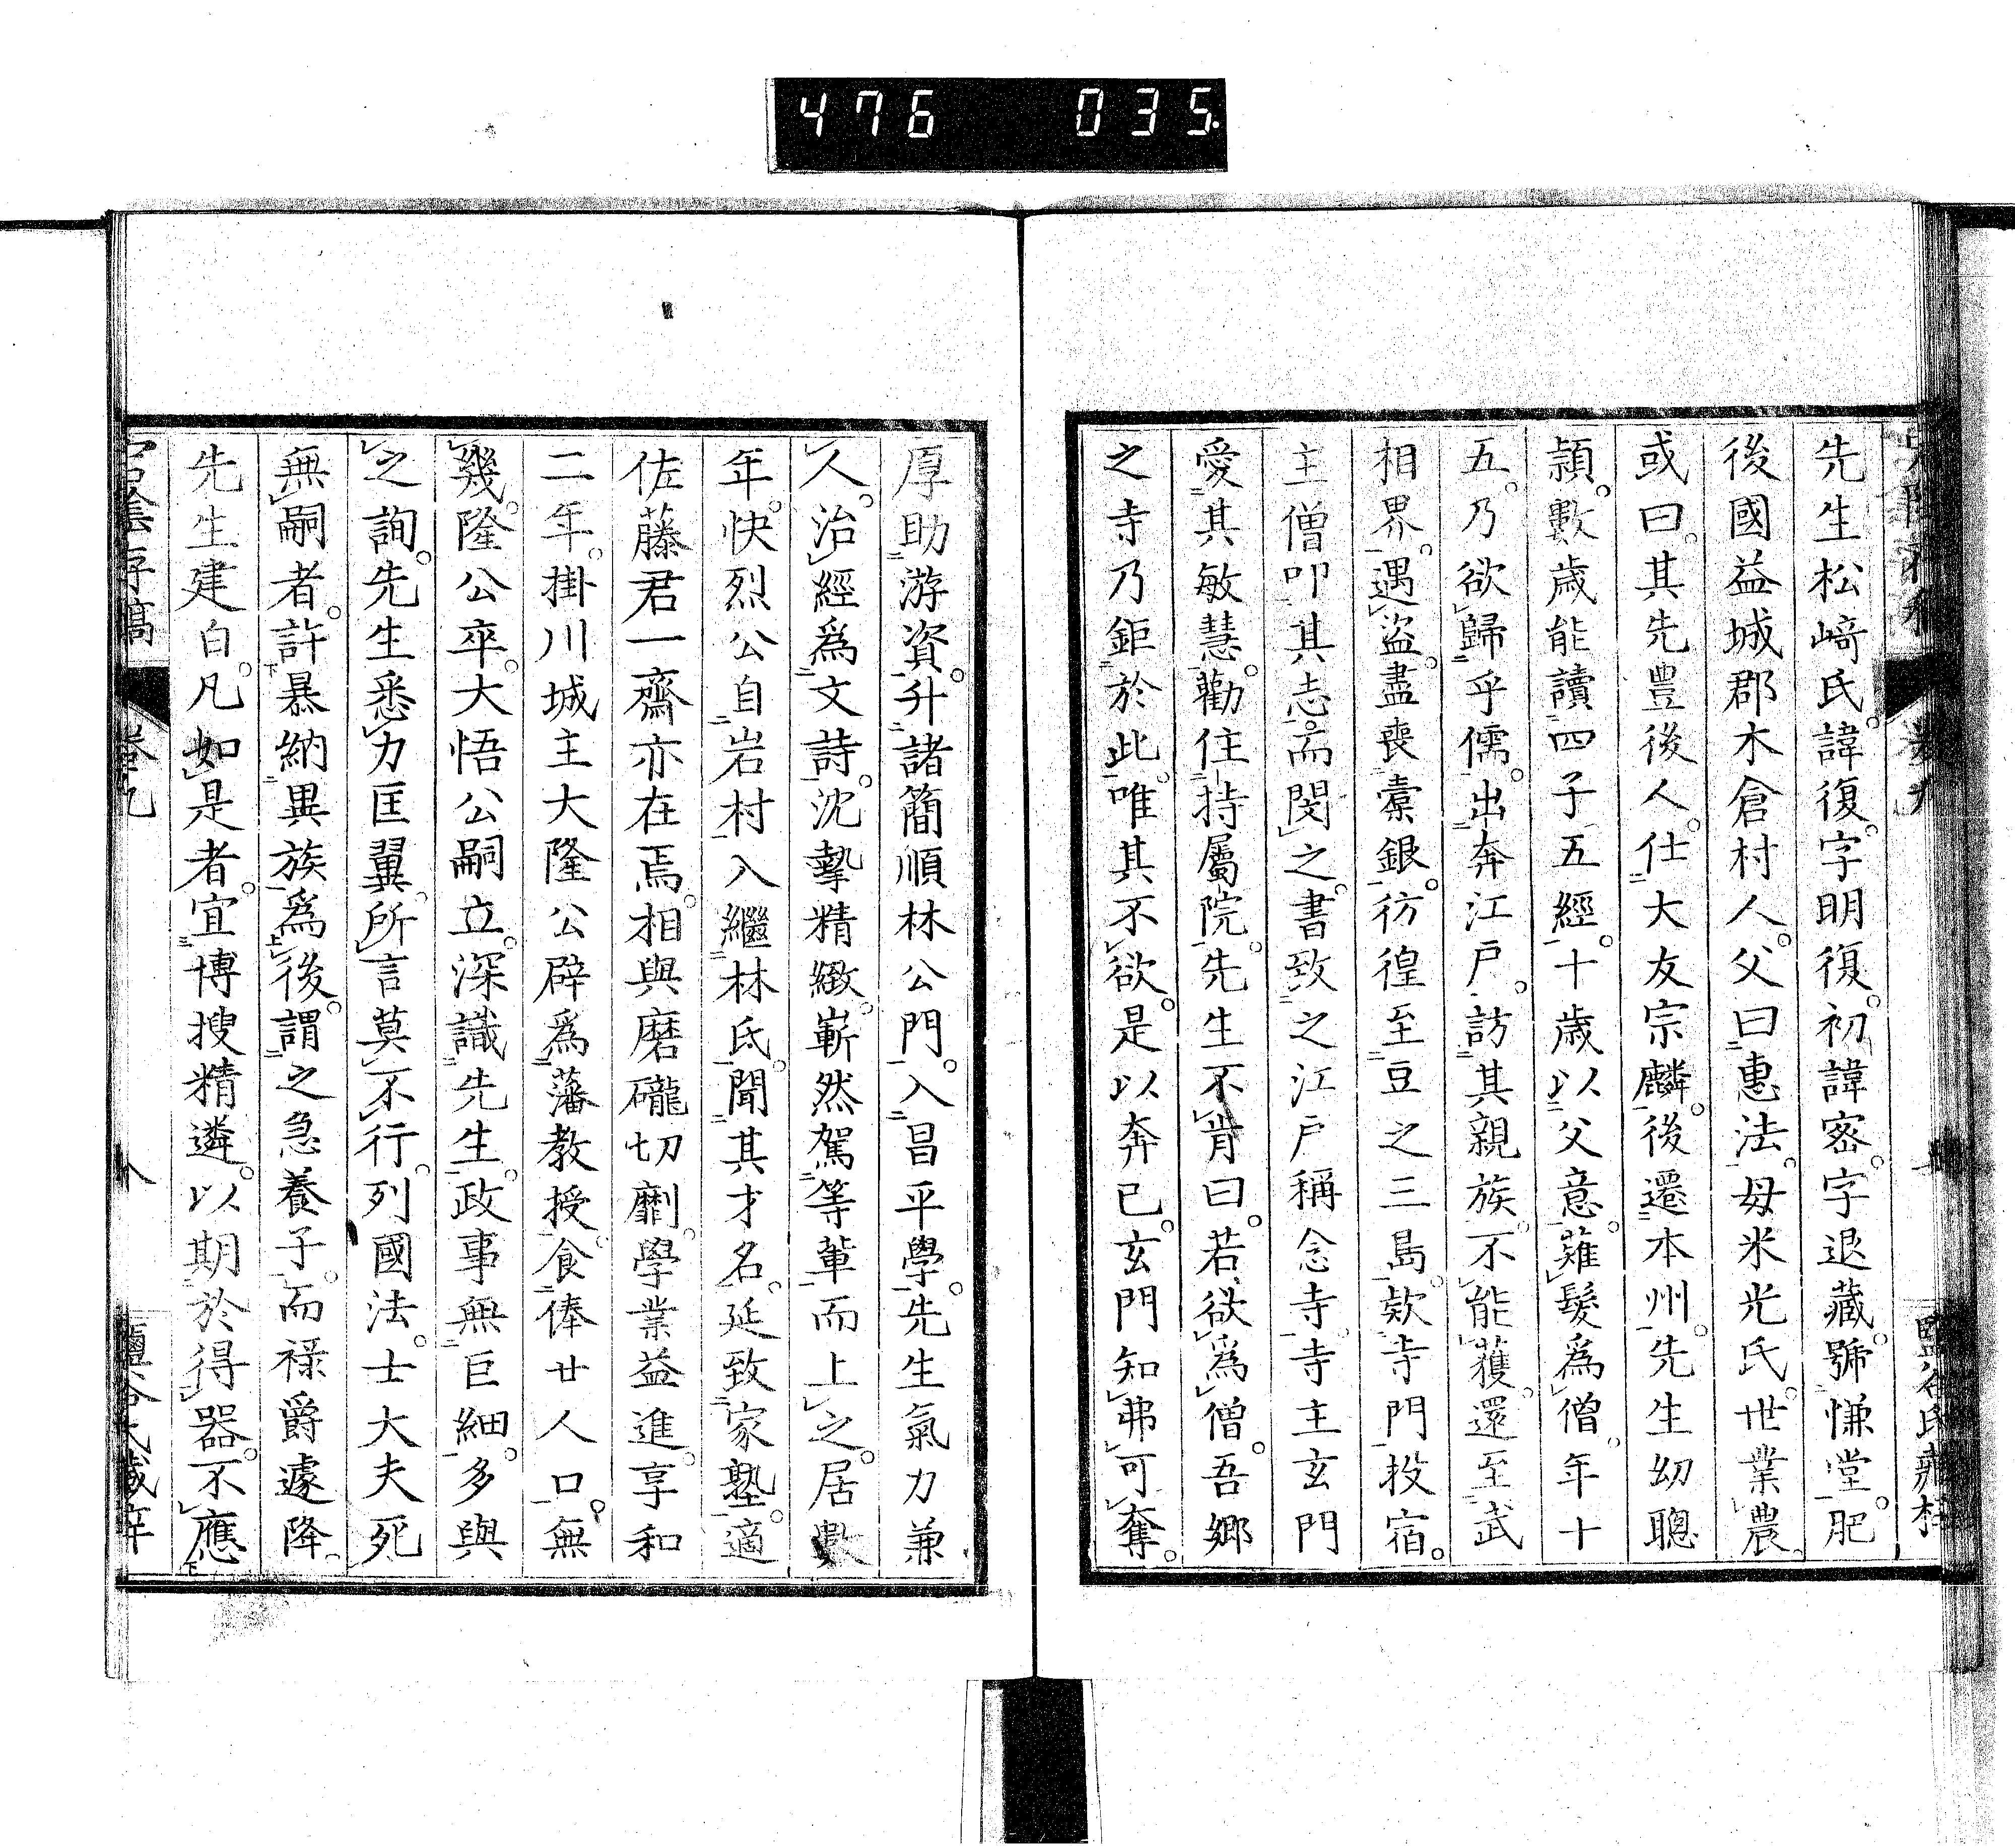 476 035
先生松﨑氏。諱復。字明復。初諱密。字退藏。號慊堂。肥
後國益城郡木倉村人。父曰惠法。母米光氏。世業農。
或曰。其先豊後人。仕大友宗麟。後遷本州。先生幼聰
頴。數歲能讀四子五經。十歲以父意。薙髮爲僧。年十
五。乃欲歸乎儒。出奔江戶。訪其親族。不能獲。還至武
相界。遇盜。盡喪橐銀。彷徨至豆之三島。欵寺門投宿。
主僧叩其志。而閔之。書致之江戶稱念寺。寺主玄門
愛其敏慧。勸住持屬院。先生不肯曰。若欲爲僧。吾鄉
之寺乃鉅於此。唯其不欲。是以奔已。玄門知弗可奪。
厚助游資。升諸簡順林公門。入昌平學。先生氣力兼
人。治經爲文詩。沈摯精緻。嶄然駕等輩而上之。居數
年。快烈公自岩村入繼林氏。聞其才名。延致家塾。適
佐藤君一齋亦在焉。相與磨礲切劘。學業益進。享和
二年。掛川城主大隆公辟爲藩教授。食俸廿人口。無
幾。隆公卒。大悟公嗣立。深識先生。政事無巨細。多與
之詢。先生悉力匡翼。所言莫不行。列國法。士大夫死
無嗣者。許暴納異族爲後。謂之急養子。而祿爵遽降。
先生建白。凡如是者。宜博搜精遴。以期於得器。不應
宕陰存稿 卷九 八